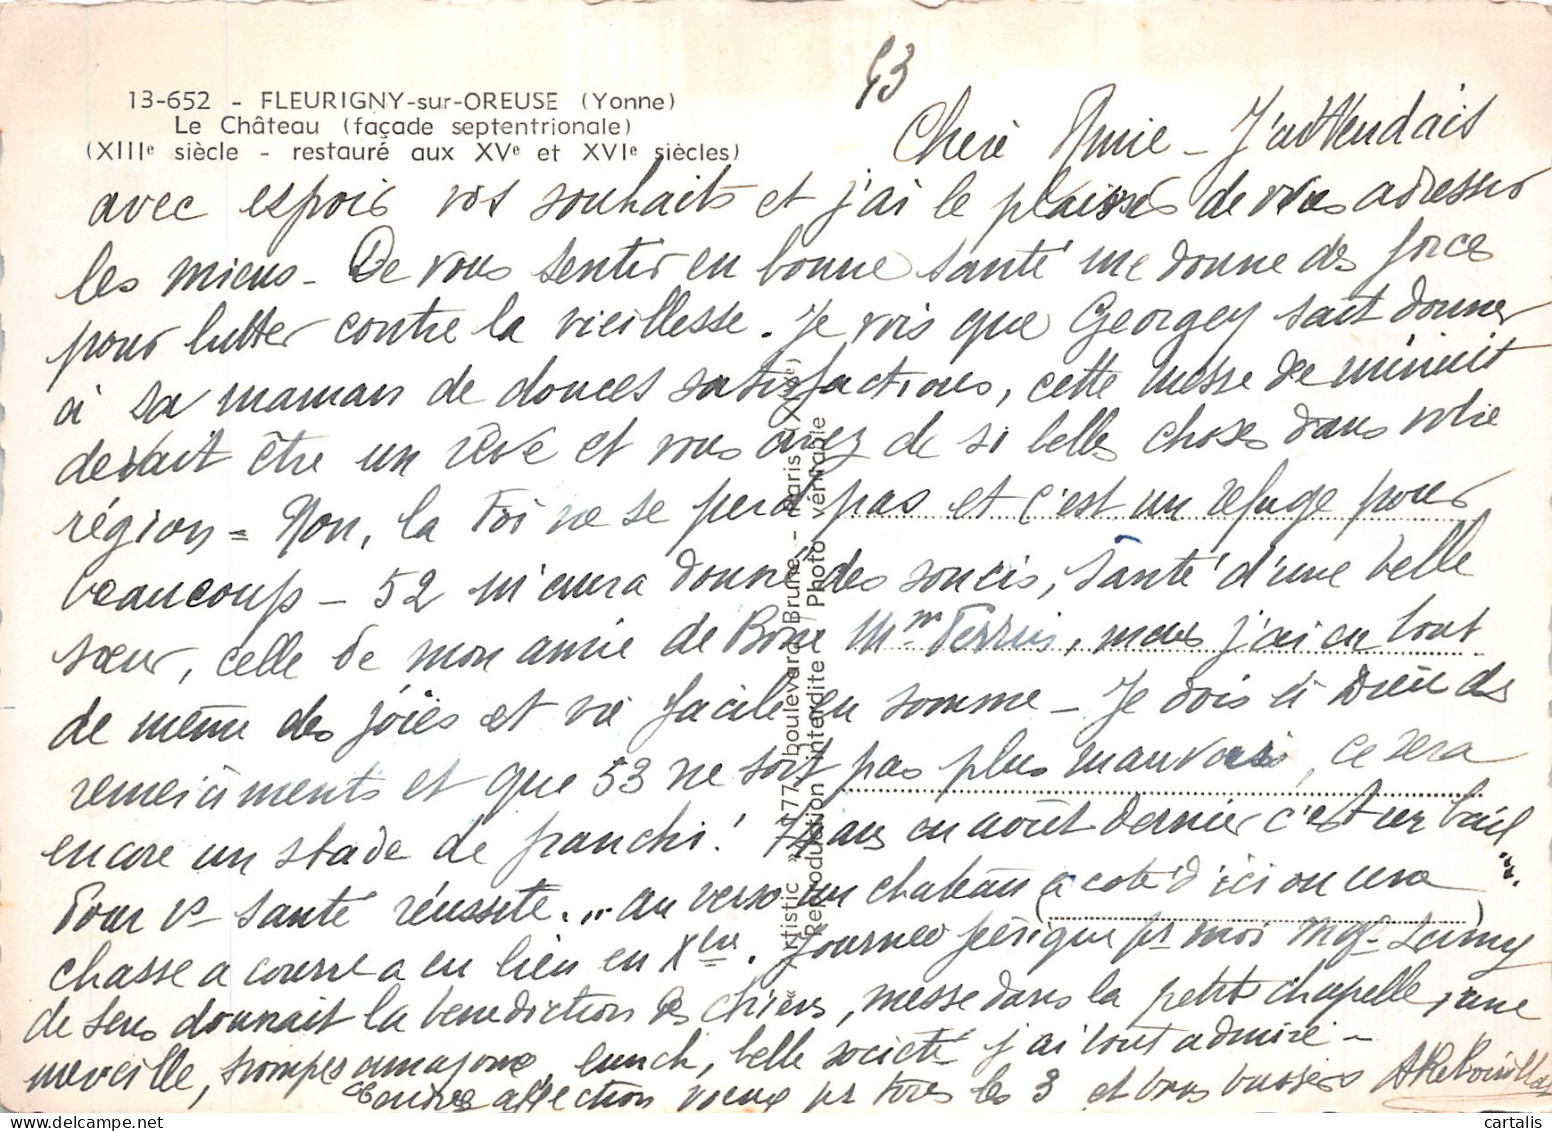 53
13-652 - FLEURIGNY-sur-OREUSE (Yonne)
Le Château (façade septentrionale)
(XIIIe siècle - restauré aux XVe et XVIe siècles)
Chère Amie - J'attendais
avec espoir vos souhaits et j'ai le plaisir de vous adresser
les miens - De vous sentir en bonne santé me donne des forces
pour lutter contre la vieillesse. Je vois que Georgey sait donner
à sa maman de douces satisfactions, cette messe de minuit
devait être un rêve et vous avez de si belles choses dans votre
région = Non, la Foi ne se perd pas et c'est un refuge pour
beaucoup - 52 m'aura donné des soucis, santé d'une belle
sœur, celle de mon amie de Mme mais j'ai eu tout
de même des joies et vie facile en somme - Je dois à Dieu des
remerciments et que 53 ne soit pas plus mauvais, ce sera
encore un stade de franchi! ans en août dernier c'est un bail
Pour santé réussite... au verso un chateau a coté d'ici on
chasse a courre a eu lieu en Xbre. Journée pr moi Mgr Lamy
de Sens donnait la benediction des chiens, messe dans la petite chapelle, une
merveille, trompes amazone, lunch, belle société j'ai tout admiré -
Tendre affection pr tous les 3 et bons baisers
"Artistic" 77, boulevard Brune - Paris (XIVe)
Reproduction interdite / Photo véritable
cartalis
www.delcampe.net